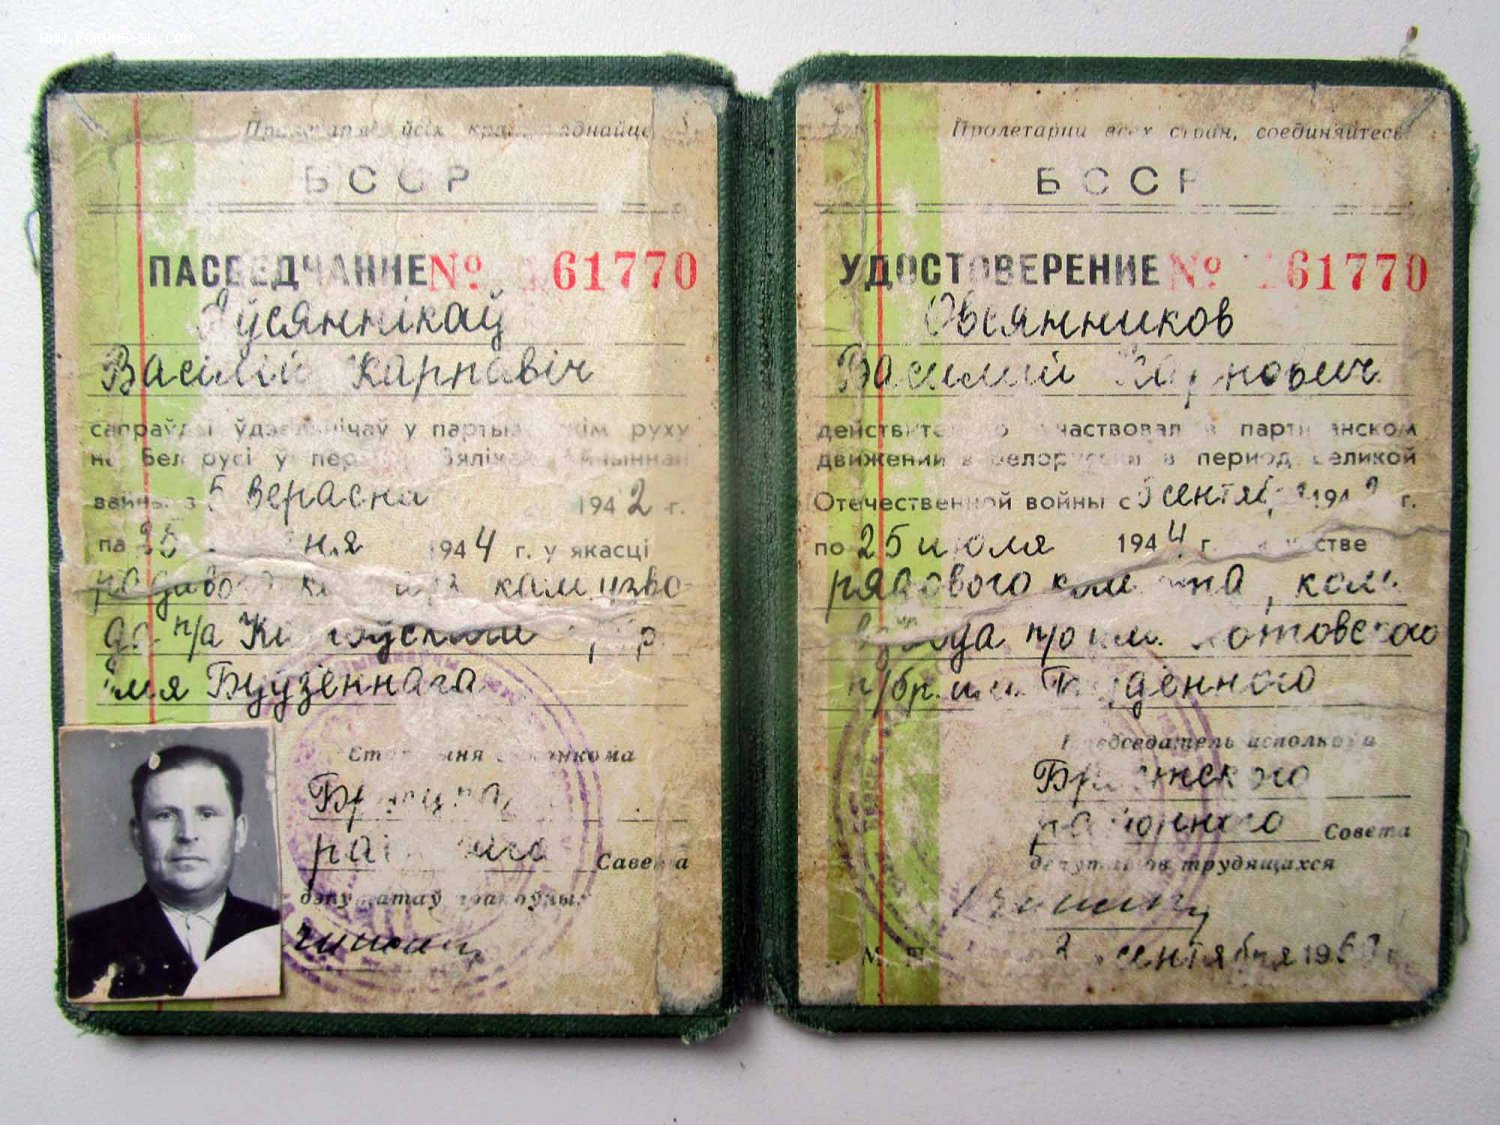 WWW.FORUMS-SU.COM
ўсіх
БССР
ПАСВЕДЧАННЕ № 61770
Аўсяннікаў
Васілій Карпавіч
сапраўды ўдзельнічаў у партызанскім руху
на Беларусі ў перыяд Вялікай Айчыннай
вайны з 5 верасня 1942 г.
па 25 1944 г. у якасці
радавога кам. узво-
да п/а
імя Будзённага
Старшыня
Савета
дэпутатаў працоўных
Пролетарии всех стран, соединяйтесь
БССР
УДОСТОВЕРЕНИЕ № 61770
Овсянников
Василий Карпович
действительно участвовал в партизанском
движении в Белоруссии в период Великой
Отечественной войны с 5 сентября 194 г.
по 25 июля 1944 г.
рядового ком
взвода п/о им. Котовского
п/бр. им. Буденного
Председатель исполкома
районного Совета
депутатов трудящихся
сентября 196